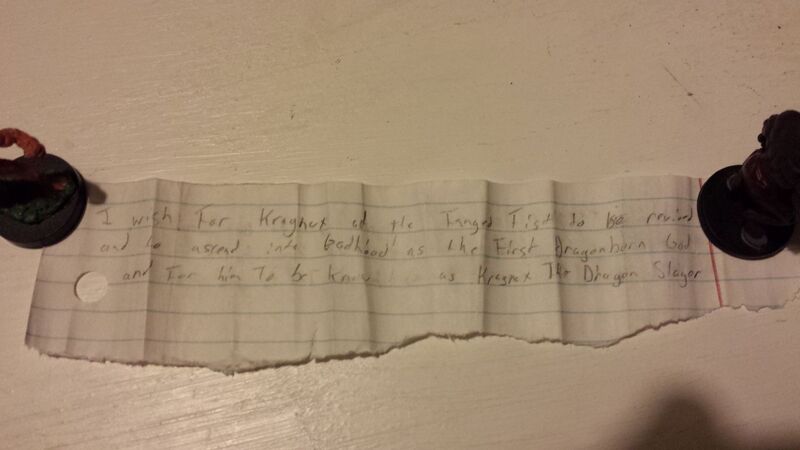 I wish For Kragnax of the Fanged Fist to be revived
and to ascend into Godhood as the First Dragonborn God
and For him To be know as Kragnax The Dragon Slayor